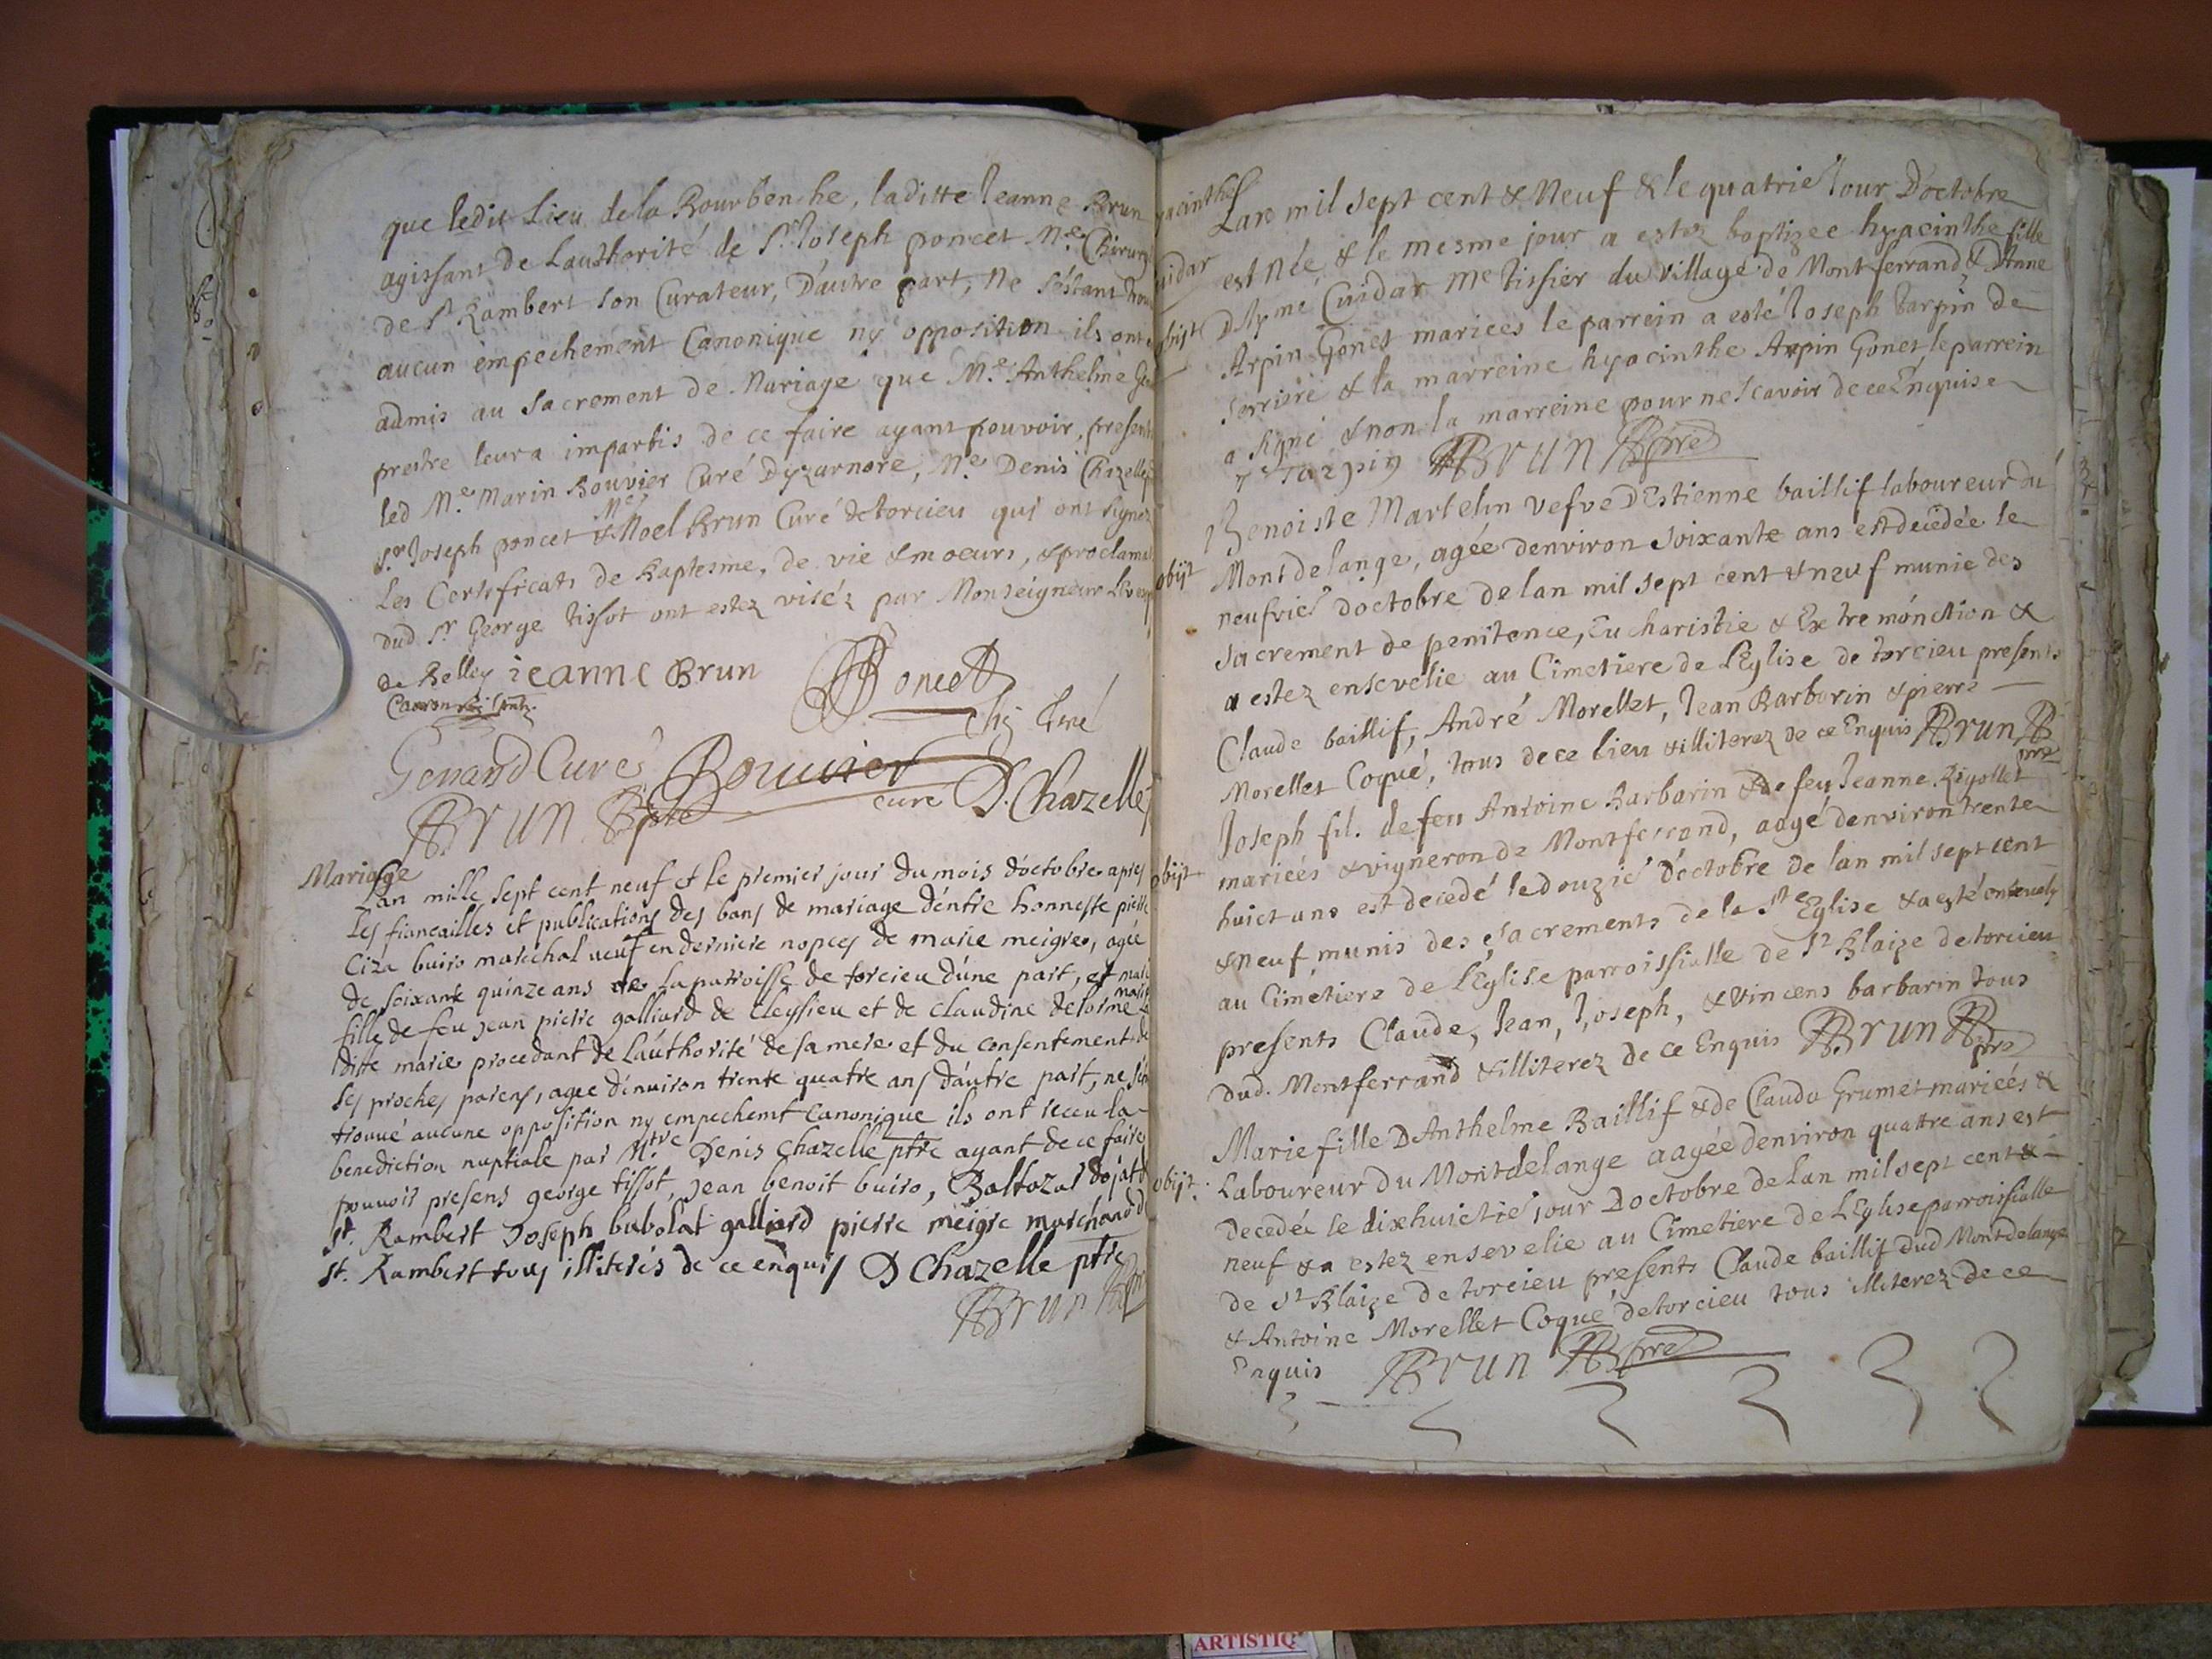 que ledit Lieu de la Bourbenche, laditte Jeanne Brun
agissant de Lauthorité de Sr. Joseph poncet Me. Chirurg
de St Rambert son Curateur, D'autre part, Ne s'éstant trou
aucun empechement Canonique ny opposition ils ont
admis au Sacrement de Mariage que Me. Anthelme Ge
prestre leur a impartis de ce faire ayant pouvoir, present
led Me. Marin Bouvier Curé Dyzarnore, Me. Denis Chazelle
Sr. Joseph poncet & Mre Noel Brun Curé de torcieu qui ont signez
Les Certificats de Baptesme, de vie & moeurs, & proclama
dud. Sr George tissot ont estez viséz par Monseigneur L'Eveq
de Belley jeanne Brun Poncet
Genand Curé Bouvier curé D. Chazelle
Brun pbre
Mariage
Lan mille sept cent neuf et le premier jour du mois d'octobre apres
les fiancailles et publications des bans de mariage d'entre honneste pierre
Ciza buiro marechal veuf en derniere nopces de marie meigre, agée
de soixante quinze ans de la parroisse de torcieu d'une part, et mari
fille de feu jean pierre galliard de Cleysieu et de claudine delorme
ditte marie procedant de L'authorité de sa mere et du consentement de
ses proches parens, agee d'environ trente quatre ans d'autre part, ne s'éta
trouué aucune opposition ny empechemt canonique ils ont receu la
benediction nuptiale par Mre Denis Chazelle ptre ayant de ce faire
pouvoir presens george tissot, jean benoit buiro, Baltazar dojat d
st. Rambert Joseph bubolat galliard pierre meigre marchand d
st. Rambert tous illiterés de ce enquis D Chazelle ptre
Brun
yacinthe
Lan mil sept cent & Neuf & le quatrie Jour D'octobre
uidar
est née, & le mesme jour a estez baptizee hyacinthe fille
D'Aymé Cuidar Me tissier du village de Montferrand & D'Anne
Arpin Gonet mariees le parrein a esté Joseph tarpin de
serriere & la marreine hyacinthe Arpin Gonet, le parrein
a signé & non la marreine pour ne scavoir de ce Enquise
J Tarpin Brun pre
Benoiste Martelin vefve D'Estienne baillif laboureur du
obijt
Mont de lange, agée denviron soixante ans est decédée le
neufvie doctobre de lan mil sept cent & neuf munie des
sacrement de penitence, Eucharistie & Extremonction &
a estez ensevelie au Cimetiere de l'Eglise de torcieu presents
Claude baillif, André Morellet, Jean Barbarin & pierre
Morellet Coqué, tous de ce lieu & illiterez de ce Enquis Brun pre
Joseph fil. de feu Antoine Barbarin & de feu Jeanne Rigollet
obijt
mariées & vigneron de Montferrand, aagé denviron trente
huict ans est decedé le douzie d'octobre de lan mil sept cent
& neuf munis des sacrements de la Ste Eglise & a esté ensevely
au Cimetiere de l'Eglise parroissialle de St Blaize de torcieu
presents Claude, Jean, Joseph, & Vincens barbarin tous
dud. Montferrand & illiterez de ce Enquis Brun pre
Marie fille D'Anthelme Baillif & de Clauda Grumet mariées &
obijt
Laboureur du Montdelange aagée denviron quattre ans est
decedée le dixhuictie jour Doctobre de lan mil sept cent &
neuf & a estez ensevelie au Cimetiere de l'Eglise parroissialle
de St Blaize de torcieu presents Claude baillif dud Montdelange
& Antoine Morellet Coqué de torcieu tous illiterez de ce
Enquis Brun pre
ARTISTIQ